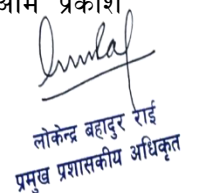 ओम प्रकाश
लोकेन्द्र बहादुर राई
प्रमुख प्रशासकीय अधिकृत